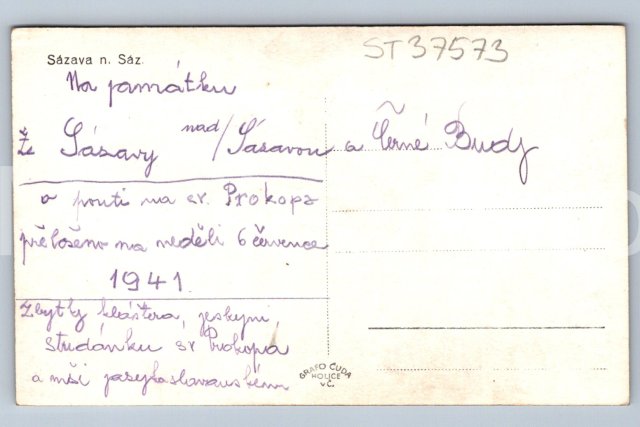 ST37573
Sázava n. Sáz.
Na památku
Ze Sásavy nad/Sásavou a Černé Budy
o pouti na sv. Prokopa
přeloženo na neděli 6 července
1941.
Zbytky kláštera, jeskyni,
studánku sv Prokopa
a mši
GRAFO ČUDA
HOLICE
v Č.